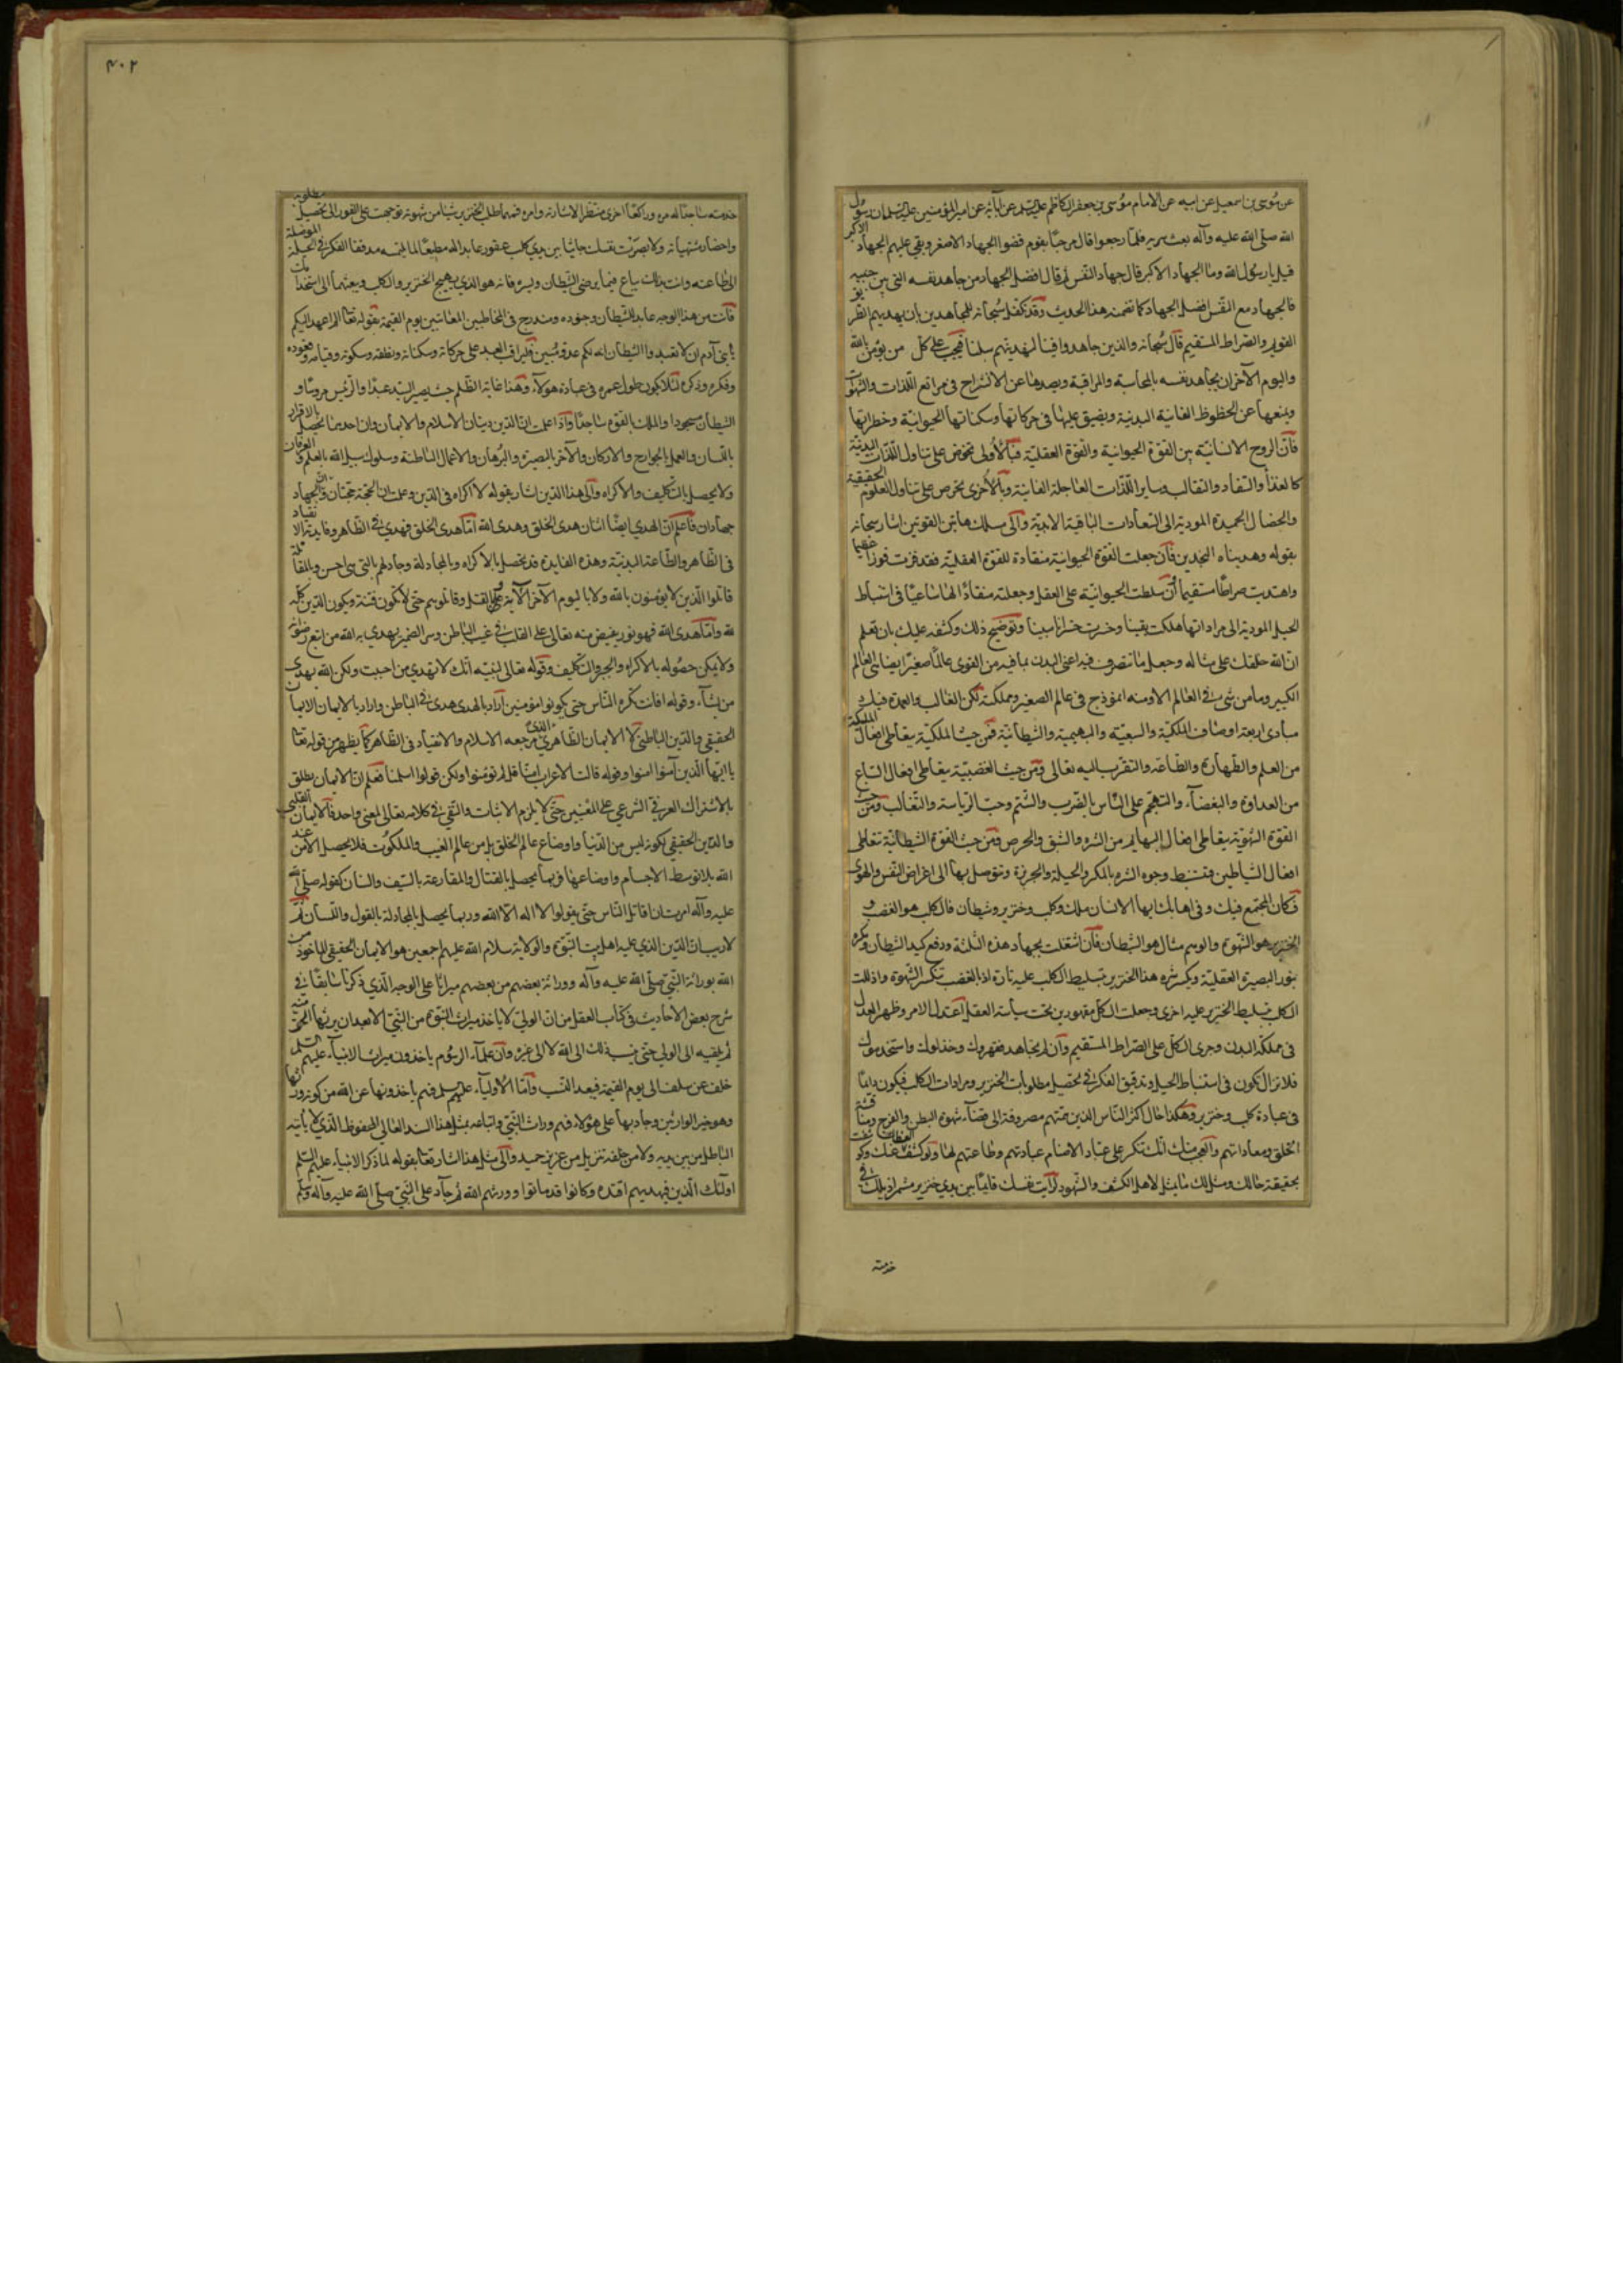 عن موسى بن اسمعيل عن ابيه عن الامام موسى بن جعفر الكاظم عليه السلم عن آبائه عن امير المؤمنين عليه السلم ان رسول
الله صلى الله عليه وآله بعث سرية فلما رجعوا قال مرحبا بقوم قضوا الجهاد الاصغر وبقي عليهم الجهاد الاكبر
قيل يا رسول الله وما الجهاد الاكبر قال جهاد النفس ثم قال افضل الجهاد من جاهد نفسه التى بين جنبيه
فالجهاد مع النفس افضل الجهاد كما تضمنه هذا الحديث وقد تكفل سبحانه للمجاهدين بان يهديهم الطريق
القويم والصراط المستقيم قال سبحانه والذين جاهدوا فينا لنهدينهم سبلنا فيجب على كل من يؤمن بالله
واليوم الآخر ان يجاهد نفسه بالمحاسبة والمراقبة ويصدها عن الانشراح فى مراتع اللذات والشهوات
ويمنعها عن الحظوظ الفانية البدنية ويضيق عليها فى حركاتها وسكناتها الحيوانية وخطراتها
فان الروح الانسانية بين القوة الحيوانية والقوة العقلية فبالاولى تحرص على تناول اللذات البدنية
كالغذاء والسفاد والتغالب وساير اللذات العاجلة الفانية وبالاخرى تحرص على تناول العلوم الحقيقية
والخصال الحميدة المودية الى السعادات الباقية الابدية والى هاتين القوتين اشار سبحانه
بقوله وهديناه النجدين فان جعلت القوة الحيوانية منقادة للقوة العقلية فقد فزت فوزا عظيما
واهتديت صراطا مستقيما وان سلطت الحيوانية على العقل وجعلته منقادا لها ساعيا فى استنباط
الحيل المودية الى مراداتها هلكت يقينا وخسرت خسرانا مبينا وتوضيح ذلك وكشفه عليك بان تعلم
ان الله خلقك على مثاله وجعل ما تتصرف فيه اعنى البدن بما فيه من القوى عالما صغيرا يضاهى العالم
الكبير وما من شىء فى العالم الا ومنه انموذج فى عالم الصغير ومملكته لكن الغالب والعمدة فيك
مبادى اربعة اوصاف الملكية والسبعية والبهيمية والشيطانية فمن حيث الملكية يتعاطى افعال الملئكة
من العلم والطهارة والطاعة والتقرب اليه تعالى ومن حيث الغضبية يتعاطى افعال السباع
من العداوة والبغضاء والتهجم على الناس بالضرب والشتم وحب الرياسة والتغالب ومن حيث
القوة الشهوية يتعاطى افعال البهايم من الشره والشبق والحرص ومن حيث القوة الشيطانية تتعاطى
افعال الشياطين فتستنبط وجوه الشر بالمكر والحيلة والجربزة وتتوصل بها الى اغراض النفس والهوى
فكان المجتمع فيك وفى اهابك ايها الانسان ملك وكلب وخنزير وشيطان فالكلب هو الغضب و
الخنزير هو الشهوة والوهم مثال هو الشيطان فان اشتغلت بجهاد هذه الثلثة ودفع كيد الشيطان ومكره
بنور البصيرة العقلية وبكسر شره هذا الخنزير بتسليط الكلب عليه تارة اذ بالغضب تنكسر الشهوة واذللت
الكلب بتسليط الخنزير عليه اخرى وجعلت الكل مقهورين تحت سياسة العقل اعتدل الامر وظهر العدل
فى مملكة البدن وجرى الكل على الصراط المستقيم وان لم تجاهدهم قهروك وخذلوك واستخدموك
فلا تزال تكون فى استنباط الحيل وتدقيق الفكر فى تحصيل مطلوبات الخنزير ومرادات الكلب فيكون دائما
فى عبادة كلب وخنزير وهكذا حال اكثر الناس الذين همتهم مصروفة الى قضاء شهوة البطن والفرج ومناقشة
الخلق ومعاداتهم والعجب منك انك تنكر على عباد الاصنام عبادتهم وطاعتهم لها ولو كشف الغطاء عنك وكوشفت
بحقيقة حالك ومثل لك ما يمثل لاهل الكشف والشهود لرأيت نفسك قائما بين يدي خنزير مشمرا ذيلك فى
خدمته
٤٠٢
خدمته ساجدا له مرة وراكعا اخرى منتظرا لاشارته وامره فمهما طلب الخنزير شيئا من شهوته توجهت على الفور الى تحصيل مطلوبه
واحضار مشتهياته ولابصرت نفسك جاثيا بين يدي كلب عقور عابدا له مطيعا لما يلتمسه مدققا الفكر فى الحيلة الموصلة
الى طاعته وانت بذلك ساع فيما يرضى الشيطان ويسره فانه هو الذي يهيج الخنزير والكلب ويبعثهما الى استخدامك
فانت من هذا الوجه عابد للشيطان وجنوده ومندرج فى المخاطبين المعاتبين يوم القيمة بقوله تعالى الم اعهد اليكم
يا بنى آدم ان لا تعبدوا الشيطان انه لكم عدو مبين فليراقب العبد على حركاته وسكناته ونطقه وسكوته وقيامه وقعوده
وفكره وذكره لئلا يكون طول عمره فى عبادة هؤلاء وهذا غاية الظلم حيث يصير السيد عبدا والرئيس مرؤسا و
الشيطان مسجودا والملك بالقوة ساجدا واذا علمت ان الدين دينان الاسلام والايمان وان احدهما تحصل بالاقرار
باللسان والعمل بالجوارح والاركان والآخر بالبصيرة والبرهان والاعمال الباطنة وسلوك سبيل الله بالعلم والعرفان
ولا يحصل بالتكليف والاكراه والى هذا الدين اشار بقوله لا اكراه فى الدين وعلمت ان الحجة حجتان وان الجهاد
جهادان فاعلم ان الهدى ايضا اثنان هدى الخلق وهدى الله اما هدى الخلق فهدى فى الظاهر وفايدته الانقياد
فى الظاهر والطاعة البدنية وهذه الفايدة قد تحصل بالاكراه وبالمجادلة وجادلهم بالتى هى احسن وبالمقاتلة
قاتلوا الذين لا يؤمنون بالله ولا باليوم الآخر الآية وبالقتل وقاتلوهم حتى لا تكون فتنة ويكون الدين كله
لله واما هدى الله فهو نور يفيض منه تعالى على القلب فى غيب الباطن وسر الضمير يهدي به الله من اتبع رضوانه
ولا يمكن حصوله بالاكراه والجبر والتكليف وقوله تعالى لنبيه انك لا تهدي من احببت ولكن الله يهدى
من يشاء وقوله افانت تكره الناس حتى يكونوا مؤمنين اراد بالهدى هدى فى الباطن واراد بالايمان الايمان
الحقيقي والدين الباطني لا الايمان الظاهري الذي مرجعه الاسلام والانقياد فى الظاهر كما يظهر من قوله تعالى
يا ايها الذين آمنوا امنوا وقوله قالت الاعراب امنا قل لم تؤمنوا ولكن قولوا اسلمنا فعلم ان الايمان يطلق
بالاشتراك العرفي الشرعي على المعنيين حتى لا يلزم الاثبات والنفي فى كلامه تعالى لمعنى واحد فالايمان القلبي
والدين الحقيقي لكونه ليس من الدنيا واوضاع عالم الخلق بل من عالم الغيب والملكوت فلا يحصل الا من عند
الله بلا توسط الاجسام واوضاعها وربما يحصل بالقتال والمقارعة بالسيف والسنان كقوله صلى الله
عليه وآله امرت ان اقاتل الناس حتى يقولوا لا اله الا الله وربما يحصل بالمجادلة بالقول واللسان ثم
لا ريب ان الدين الذي عليه اهل بيت النبوة والولاية سلام الله عليهم اجمعين هو الايمان الحقيقي الماخوذ من
الله بوراثة النبي صلى الله عليه وآله ووراثة بعضهم من بعضهم ميراثا على الوجه الذي ذكرنا سابقا فى
شرح بعض الاحاديث فى كتاب العقل من ان الولي لا ياخذ ميراث النبوة من النبي الا بعد ان يرثها الحق منه
ثم يلقيه الى الولي حتى ينسب ذلك الى الله لا الى غيره وان علماء الرسوم ياخذون ميراث الانبياء عليهم السلم
خلف عن سلف الى يوم القيمة فيبعد النسب واما الاولياء عليهم سلم فهم ياخذونها عن الله من كونه ورثها
وهو خير الوارثين وجاد بها على هؤلاء فهم وراث النبي واتباعه بمثل هذا السند العالي المحفوظ الذي لا يأتيه
الباطل من بين يديه ولا من خلفه تنزيل من عزيز حميد والى مثل هذا اشار تعالى بقوله لما ذكر الانبياء عليهم السلم
اولئك الذين فبهديهم اقتده وكانوا قد ماتوا وورثهم الله ثم جاد على النبي صلى الله عليه وآله وسلم